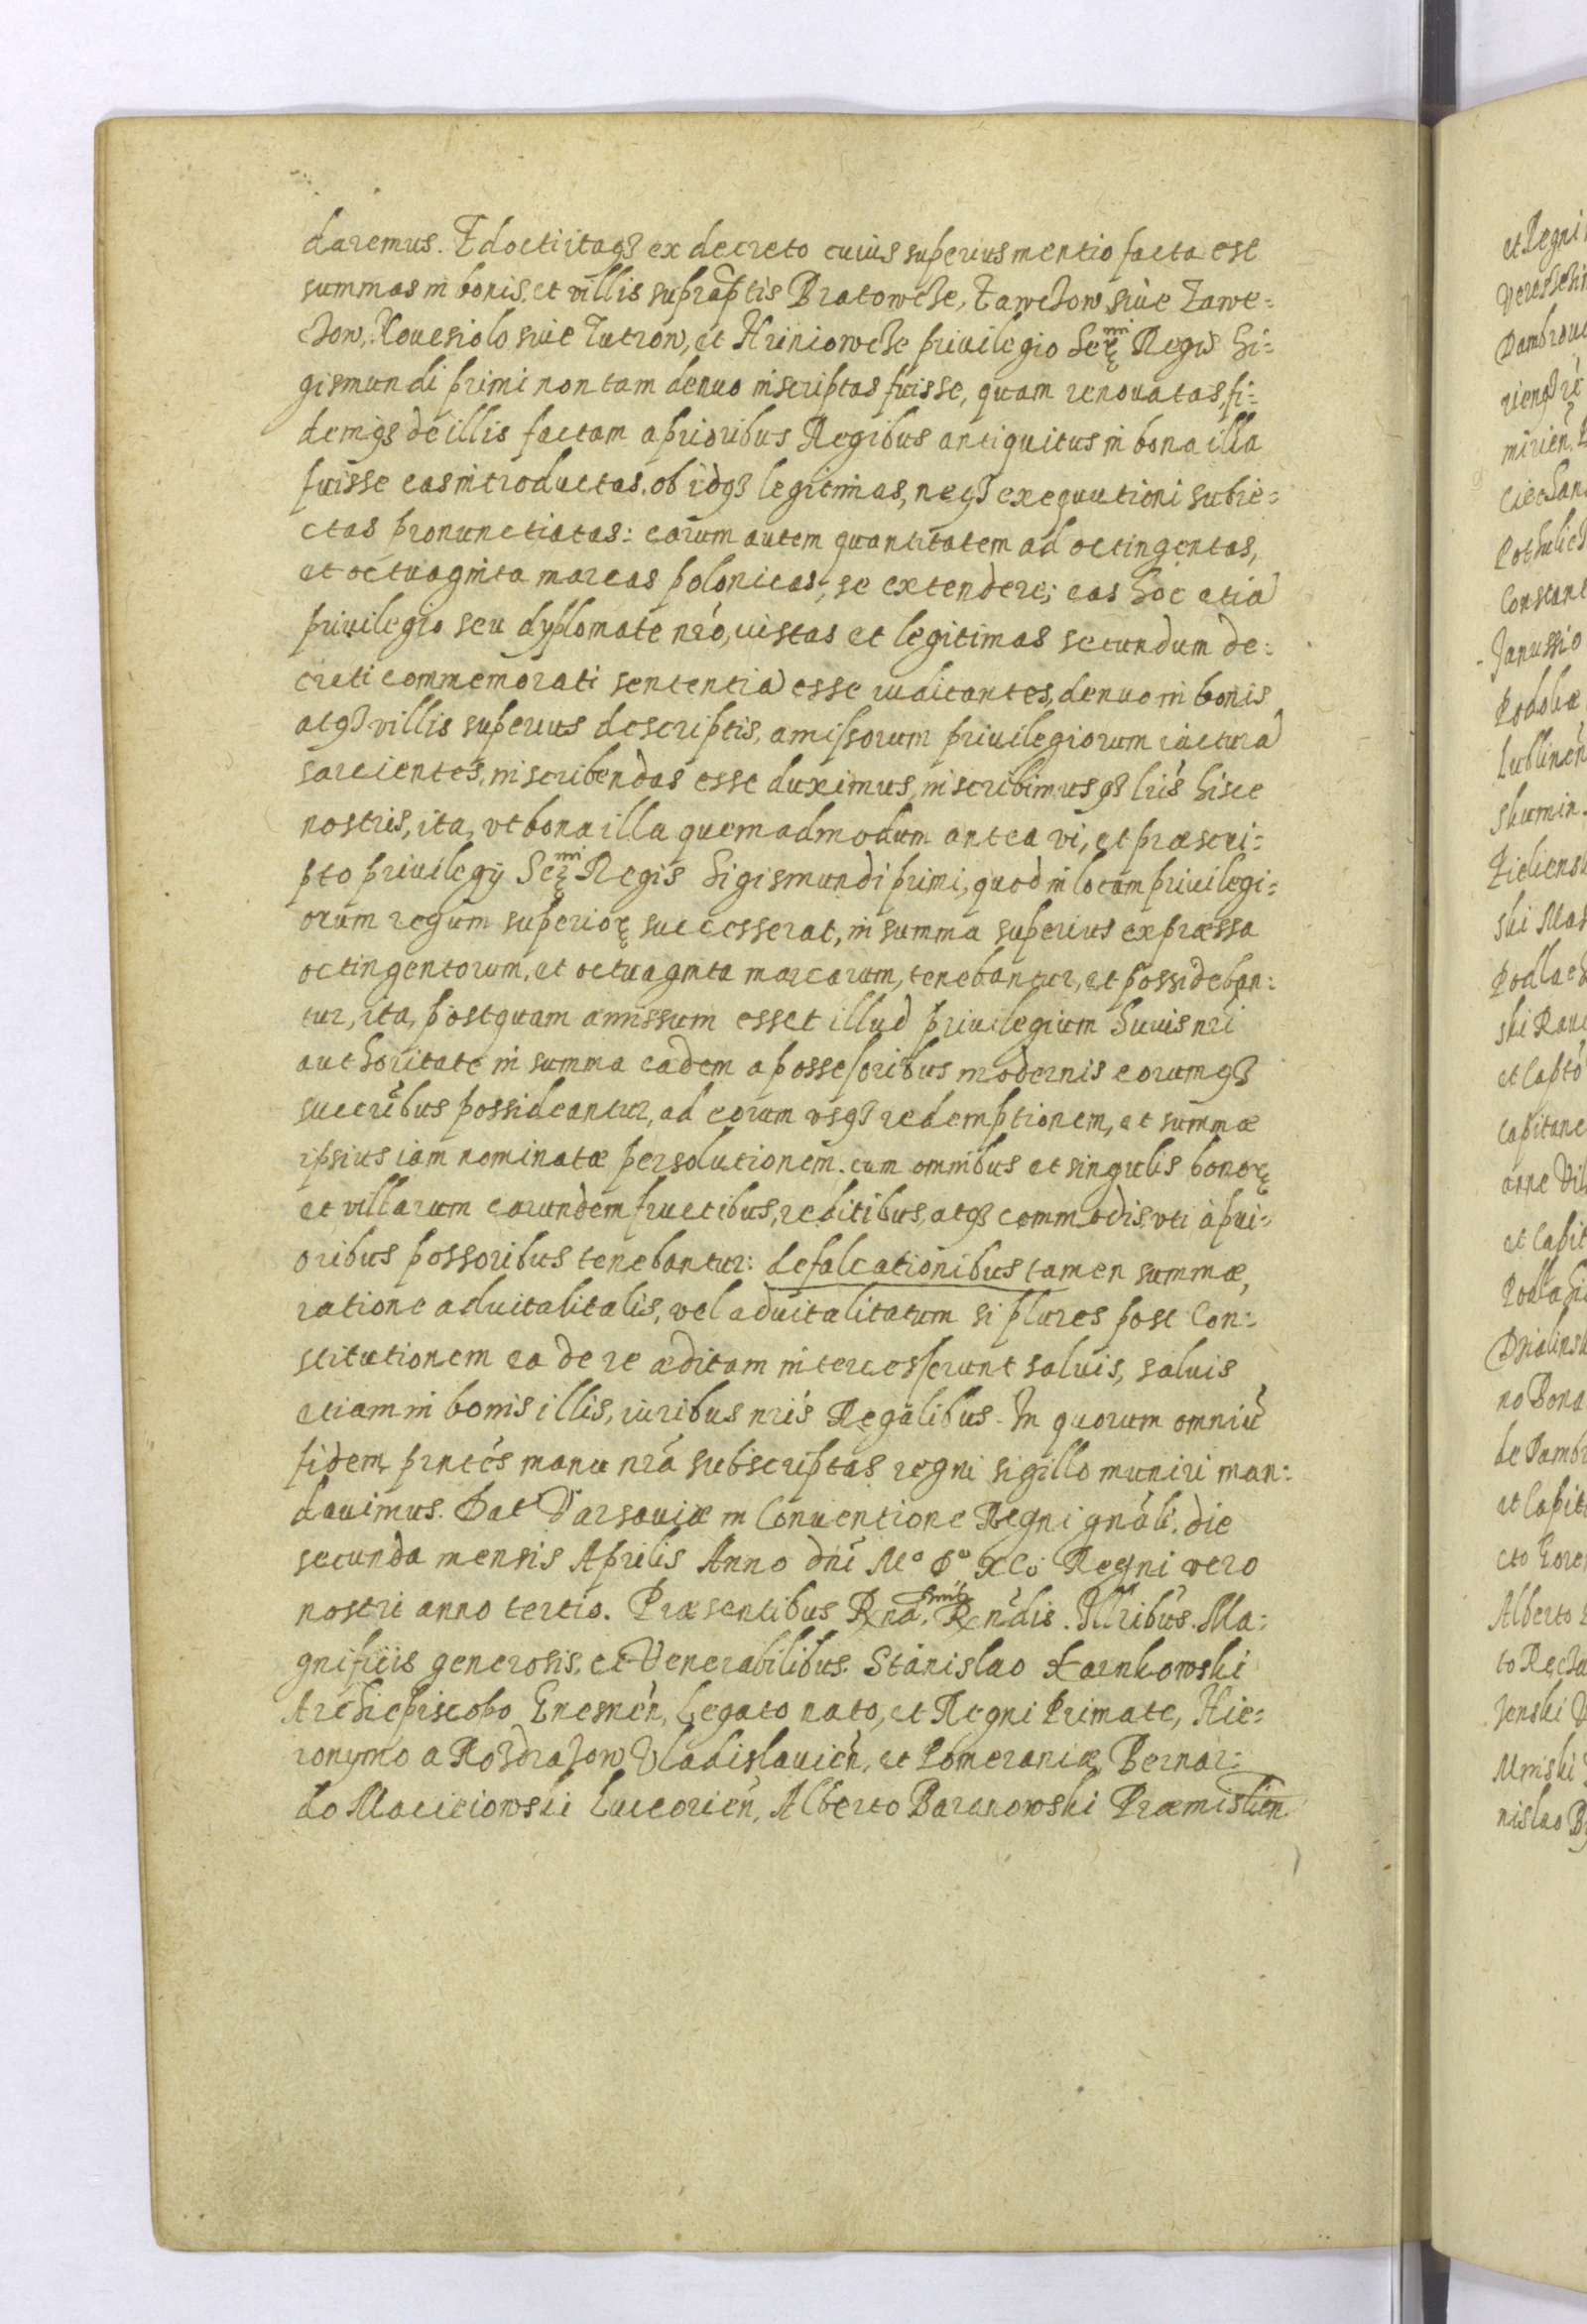 daremus. Edocti itaqз ex decreto cuius superius mentio facta est
summas in bonis, et villis supraptis Bratowcze, Zawczow siue Zawe=
czow, Nouesiolo siue Tutrow, et Hriniowcze priuilegio Seęmi Regis Si=
gismundi primi non tam denuo inscriptas fuisse, quam renouatas, fi=
demqз de illis factam a prioribus Regibus antiquitus in bona illa
fuisse eas introductas. ob idqз legitimas, neqз exequutioni subie=
ctas pronunctiatas: earum autem quantitatem ad octingentas,
et octuaginta marcas polonicas, se extendere; eas hoc etiā
priuilegio seu dyplomate nro, iustas et legitimas secundum de:
creti commemorati sententiā esse iudicantes, denuo in bonis
atqз villis superius descriptis, amissorum priuilegiorum iacturā
sarcientes, inscribendas esse duximus, inscribimusqз lris hisce
nostris, ita, vt bona illa quemadmodum antea vi, et præscri=
pto priuilegÿ Seęmi Regis Sigismundi primi, quod in locum priuilegi=
orum regum superiorę successerat, in summa superius expræssa
octingentorum, et octuaginta marcarum, tenebantur, et possideban:
tur, ita, postquam amissum esset illud priuilegium huius nri
authoritate in summa eadem a possessoribus modernis eorumqз
succribus possideantur, ad eorum vsqз redemptionem, et summæ
ipsius iam nominatæ persolutionem. cum omnibus et singulis bonorę
et villarum earundem fructibus, reditibus, atqз commodis, vti à pri=
oribus possoribus tenebantur: defalcationibus tamen summæ,
ratione aduitalitatis, vel aduitalitatum si plures post Con:
stitutionem ea de re æditam intercesserunt saluis, saluis
etiam in bonis illis, iuribus nris Regalibus. In quorum omniū
fidem prntes manu nra subscriptas regni sigillo muniri man:
dauimus. Dat Varsauiæ in Conuentione Regni gnali. die
secunda mensis Aprilis Anno dni Mº Dº XC. Regni vero
nostri anno tertio. Præsentibus Rnd. smis Rendis. Illribus. Ma:
gnificis generosis. et Venerabilibus. Stanislao Karnkowski
Archiepiscopo Gnesnen, Legato nato, et Regni Primate, Hie:
ronymo a Rozdrazow Vladislauien, et Pomeraniæ, Bernar:
do Macieiowski Luceorien, Alberto Baranowski Præmislien